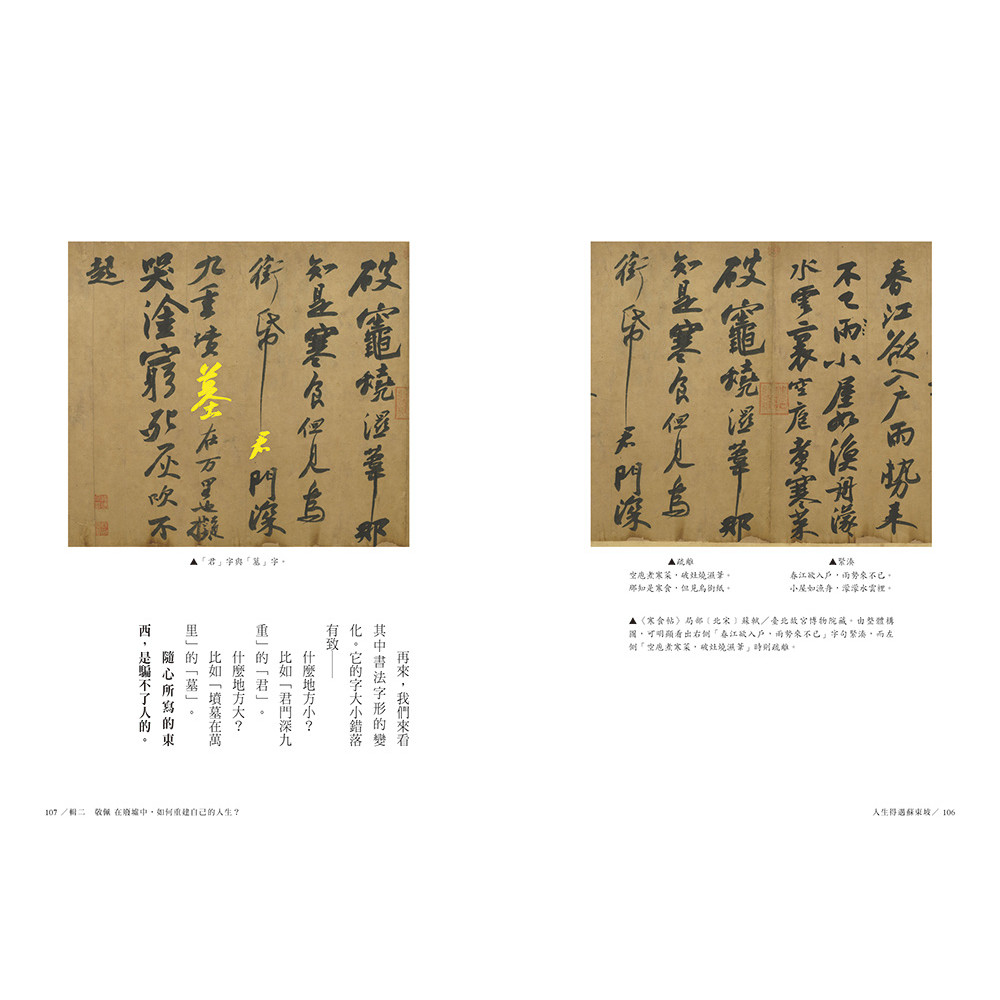 春江欲入戶雨勢來
不已雨小屋如漁舟濛
水雲裏空庖煑寒菜
破竈燒濕葦那
知是寒食但見烏
銜帋君門深
▲緊湊
春江欲入戶，雨勢來不已。
小屋如漁舟，濛濛水雲裡。
▲疏離
空庖煮寒菜，破灶燒濕葦。
那知是寒食，但見烏銜紙。
▲《寒食帖》局部〔北宋〕蘇軾／臺北故宮博物院藏。由整體構
圖，可明顯看出右側「春江欲入戶，雨勢來不已」字句緊湊，而左
側「空庖煮寒菜，破灶燒濕葦」時則疏離。
人生得遇蘇東坡／ 106
破竈燒濕葦那
知是寒食但見烏
銜帋君門深
九重墳墓在万里也擬
哭塗窮死灰吹不
起
▲「君」字與「墓」字。
再來，我們來看
其中書法字形的變
化。它的字大小錯落
有致——
什麼地方小？
比如「君門深九
重」的「君」。
什麼地方大？
比如「墳墓在萬
里」的「墓」。
隨心所寫的東
西，是騙不了人的。
107 ／輯二　敬佩 在廢墟中，如何重建自己的人生？